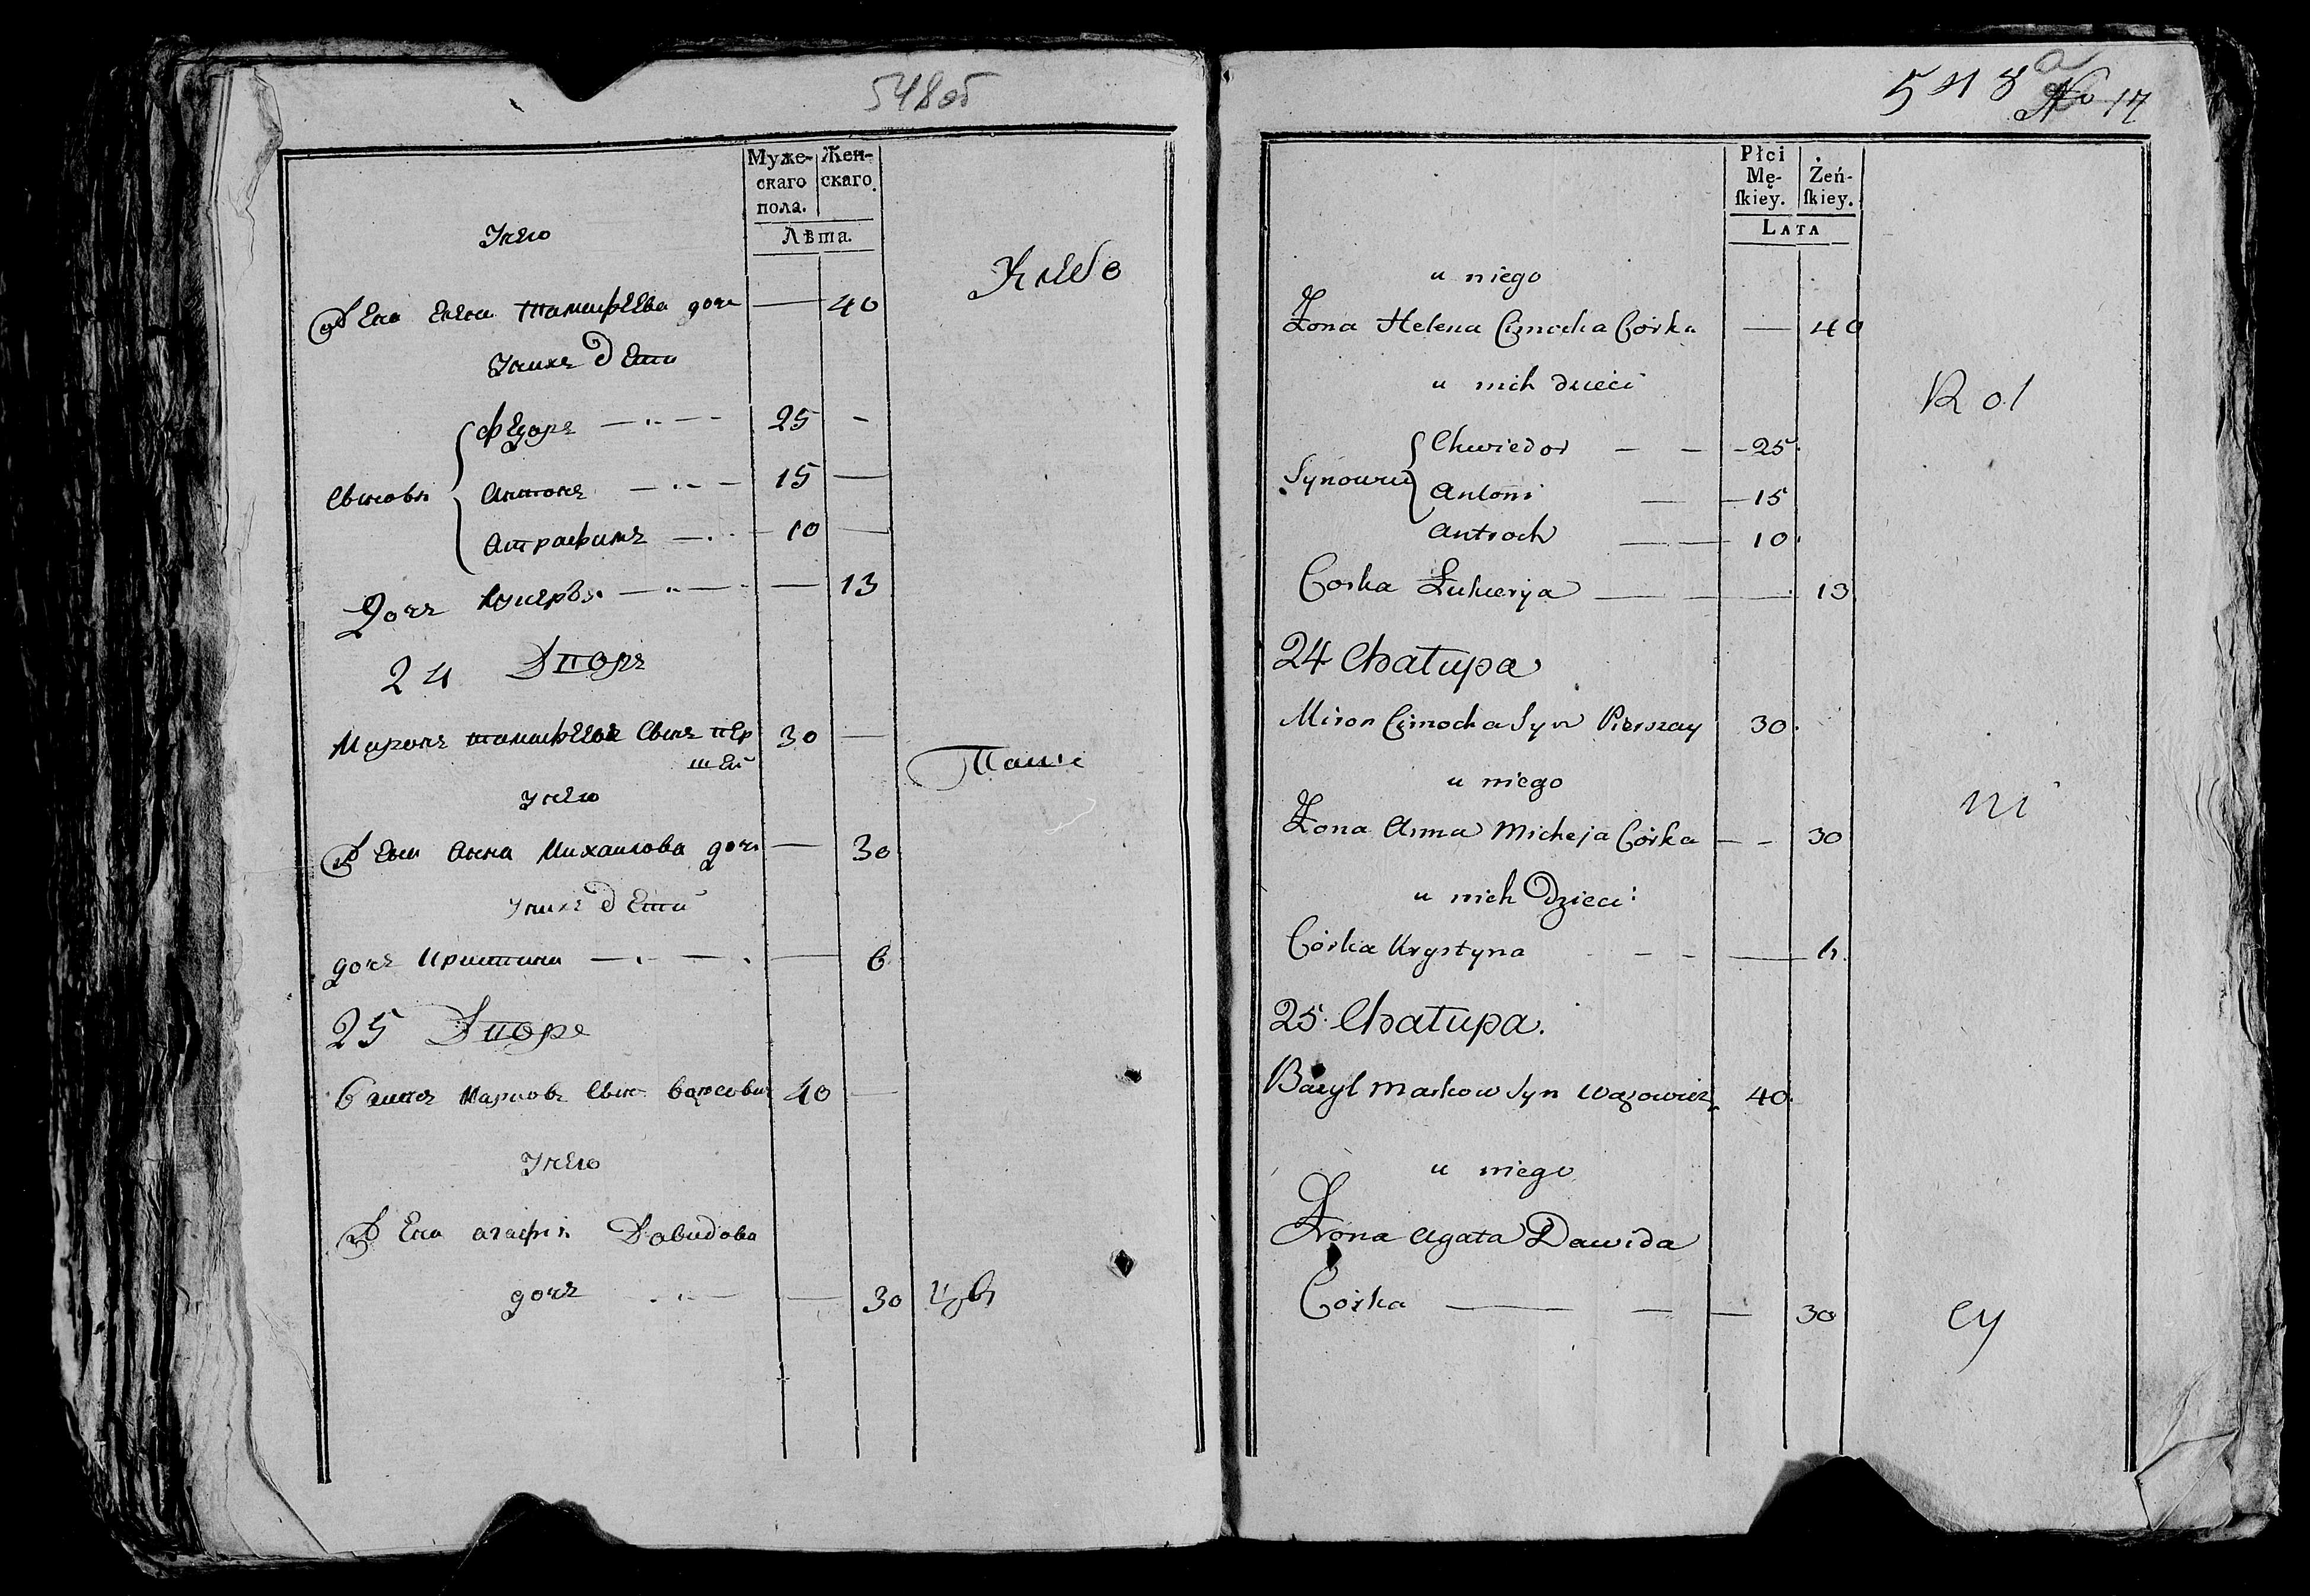 548об
Муже- Жен-
скаго скаго.
пола.
Лѣта.
У него
Жена Елена Тимофеева дочь — 40
Хлебо
У нихъ дети
Федоръ — 25 —
Сынови Антонъ — 15 —
Атрафимъ — 10 —
Дочь — 13
24 Дворъ
Миронъ Тимофеевъ Сынъ пер 30 —
шей
Паш
У него
Жена Анна Михаилова дочь — 30
У нихъ дети
дочь Кристина — 6
25 Дворъ
Марковъ Сынъ 40 —
У него
Жена Агафія Давидова
дочь — 30 цы
548 a
No 17
Płci
Mę- Żeń-
ſkiey. ſkiey.
LATA
u niego
Żona Helena Cimocha Córka — 40
u nich dzieci
Rol
Chwiedor — — 25.
Synowie Antoni — 15
Antroch — 10.
Corka Łukierya — 13
24 Chałupa
Miron Cimocha Syn Pierszay 30.
u niego
ni
Żona Anna Micheja Córka — — 30
u nich Dzieci:
Córka Krystyna — — 6.
25. Chałupa.
Bazyl Markow Syn Wazowicz 40.
u niego
Żona Agata Dawida
Córka — — — 30
cy